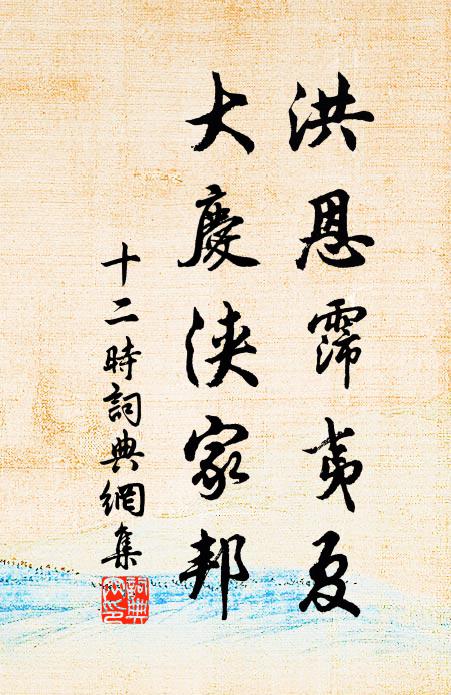 洪恩霈夷夏
大慶浹家邦
十二時詞典網集